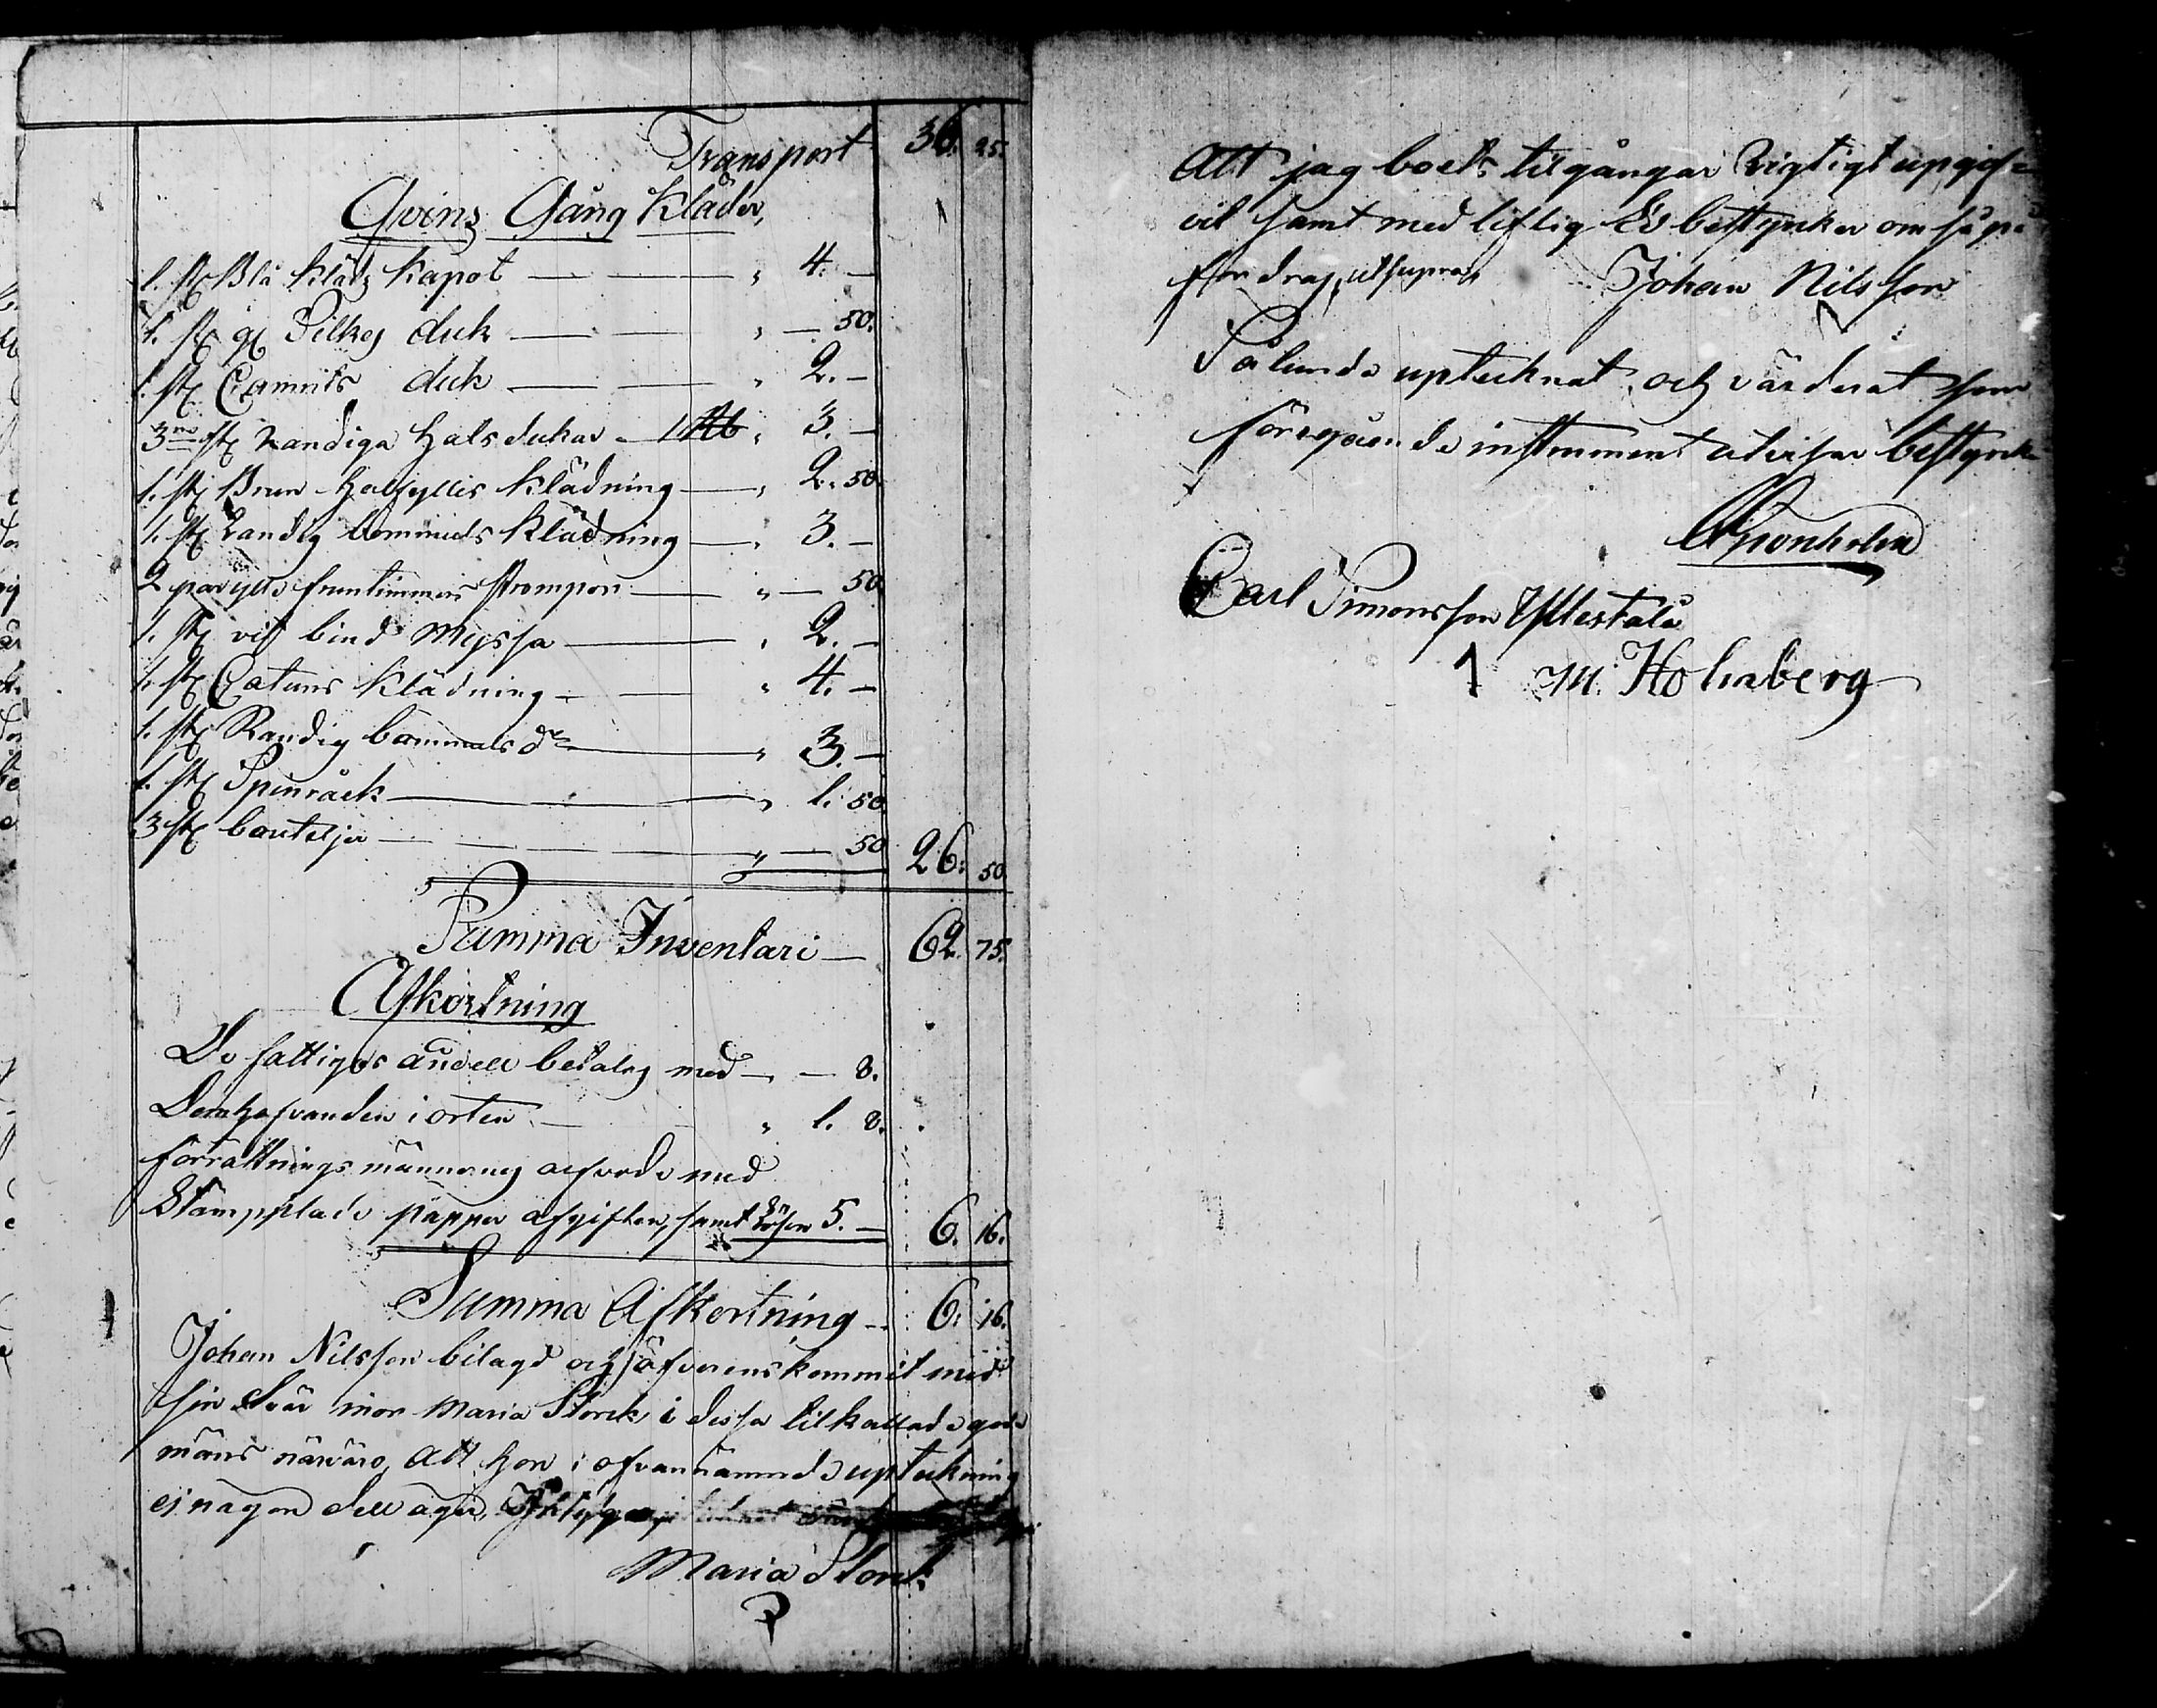 Transport 36. 25.
Qvins Gång Kläder,
1. st Blå Kläds Kapot — " 4. —
1. st gl Silkes duk — " — 50.
1. st Camrits duk — " 2. —
3ne st randiga halsdukar — 1 Rd " 3. —
1. st Brun halfyllis Klädning — " 2. 50.
1. st randig bommuls Klädning — " 3. —
2 par ylle fruntimmers strumpor — " — 50
1. st vit bind Myssa — " 2. —
1. st Catuns Klädning — " 4. —
1. st Randig bommuls do — " 3. —
1. st Spinråck — " 1. 50
3 st bouteljer — " — 50 26. 50.
Summa Inventari — 62. 75.
Afkortning
De fattigas andell betalas med — " — 8.
Domhafvanden i orten — " 1. 8.
förrättnings männernes arfvode med
Stämpplade papper afgiften, samt 5. — 6. 16.
Summa Afkortning — 6. 16.
Johan Nilsson bilagd och öfverenskommit med
sin Svär mor Maria Storck i dessa tilkallade gode
mäns närvaro, Att hon i ofvannämnde upteckning
ej någon dell äger,
Maria Storck
Att jag boets tilgångar rigtigt upgif-
vit samt med liflig Ed bestyrker om så på
fordras, ut supra Johan Nilsson
Sålunda uptecknat och värderat som
föregående instrument utvisar bestyrka
Carl Simonsson Yllestala
M. Holmberg